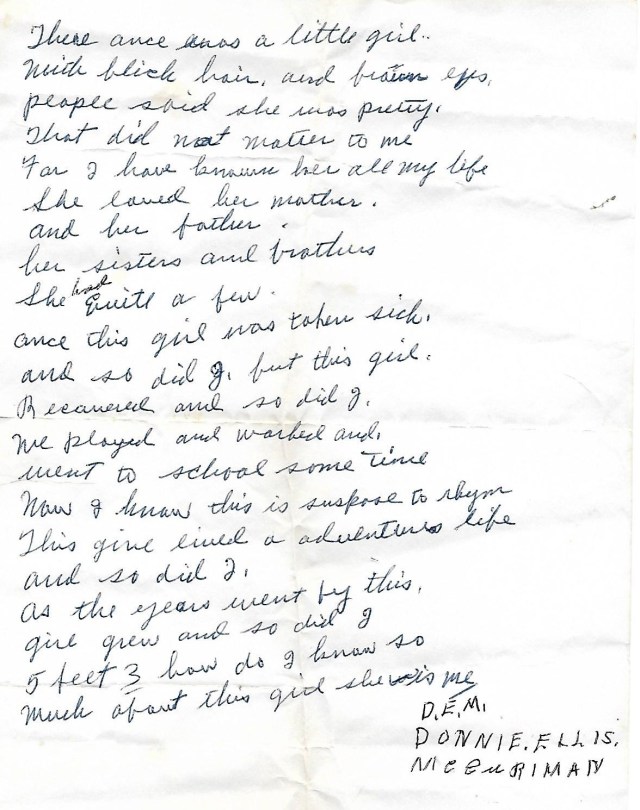 There once was a little girl..
With blick hair, and brown eyes,
people said she was pretty.
That did not matter to me
For I have known her all my life
She loved her mother.
and her father.
her sisters and brothers
She had Quite a few.
once this girl was taken sick.
and so did I, but this girl.
Recovered and so did I.
We played and worked and,
went to school some time
Now I know this is suspose to rhym
This girl lived a adventures life
and so did I.
as the years went by this,
girl grew and so did I
5 feet 3 how do I know so
Much about this girl she is me
D.E.M.
DONNIE. ELLIS.